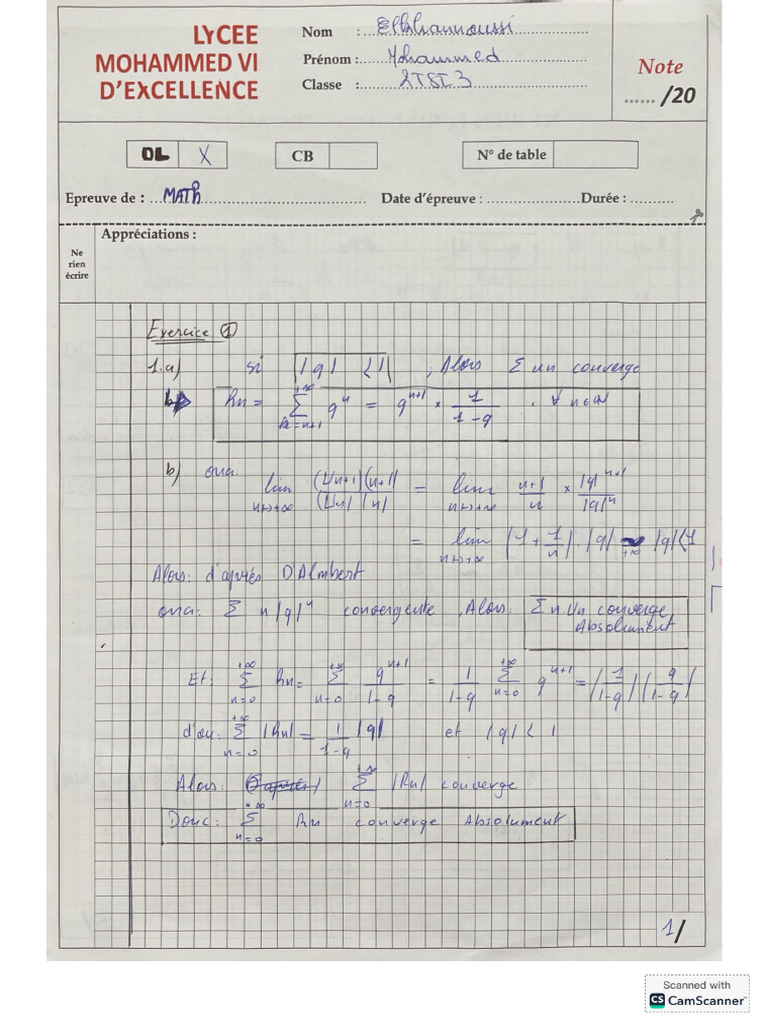 LYCEE
MOHAMMED VI
D'EXCELLENCE
Nom : Elkhannoussi
Prénom : Mohammed
Classe : 2TSI3
Note
...... /20
DL X CB N° de table
Epreuve de : MATh Date d'épreuve : Durée :
Appréciations :
Ne
rien
écrire
Exercice ①
1.a) si |q| < 1 , Alors Σ un converge
Rn = Σ_{k=n+1}^{+∞} q^n = q^{n+1} × 1/(1-q) , ∀ n ∈ ℕ
b) ona: lim_{n→+∞} (|Un+1|(n+1))/(|Un| |n|) = lim_{n→+∞} (n+1)/n × |q|^{n+1}/|q|^n
= lim_{n→+∞} (1 + 1/n) . |q| ~_{+∞} |q| < 1
Alors: d'après D'Almbert
ona: Σ n|q|^n convergente , Alors: Σ n.Un converge
Absolument
Et: Σ_{n=0}^{+∞} Rn = Σ_{n=0}^{+∞} q^{n+1}/(1-q) = 1/(1-q) Σ_{n=0}^{+∞} q^{n+1} = (1/(1-q)) (q/(1-q))
d'ou: Σ_{n=0}^{+∞} |Rn| = 1/(1-q) |q| et |q| < 1
Alors: Σ_{n=0}^{+∞} |Rn| converge
Donc: Σ_{n=0}^{+∞} Rn converge Absolument
1/
Scanned with
CS CamScanner